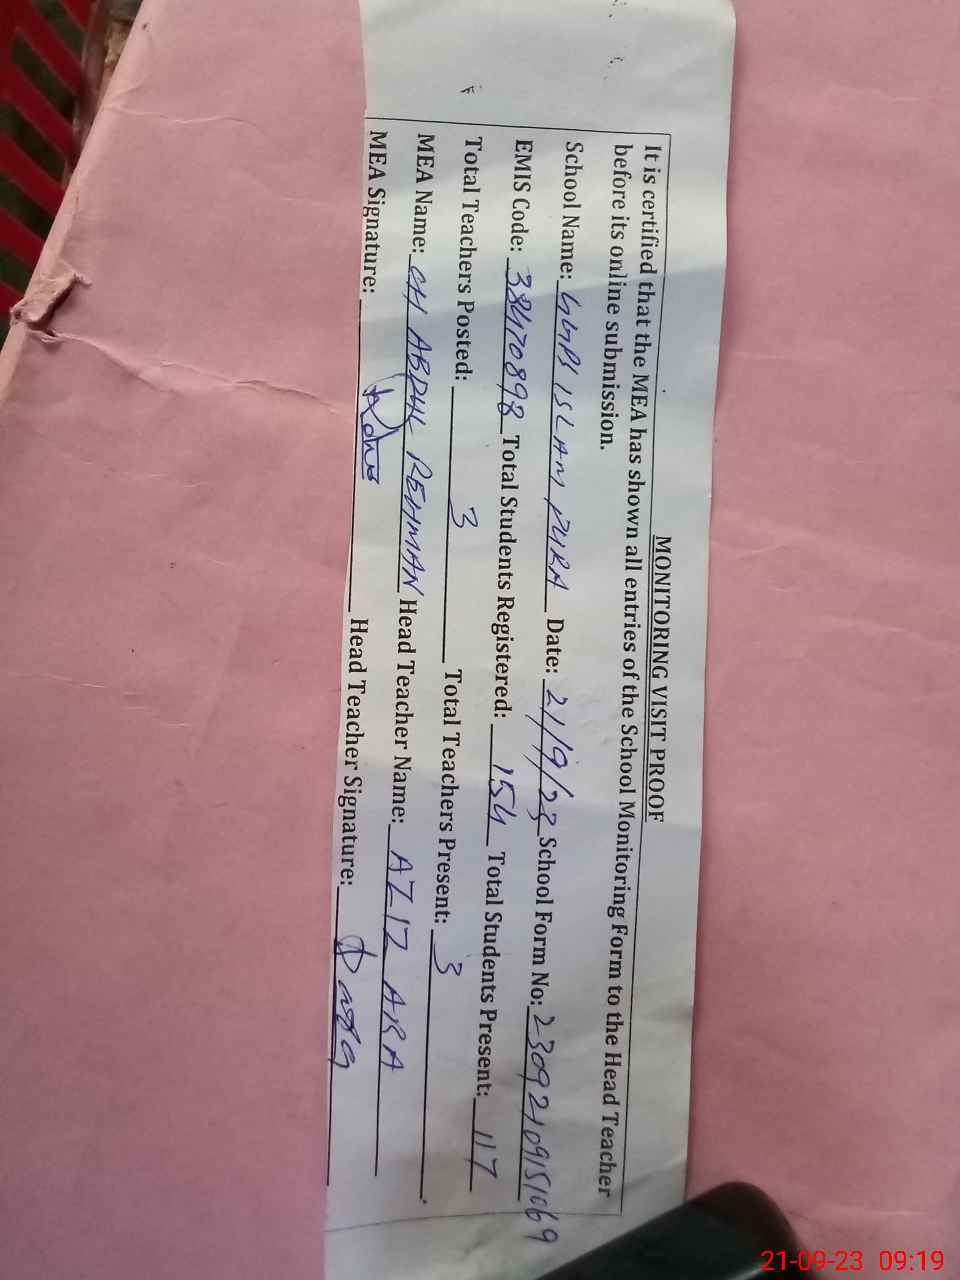 MONITORING VISIT PROOF
It is certified that the MEA has shown all entries of the School Monitoring Form to the Head Teacher
before its online submission.
School Name: GGPS ISLAM PURA Date: 21/9/23 School Form No: 23092109151069
EMIS Code: 38470898 Total Students Registered: 154 Total Students Present: 117
Total Teachers Posted: 3 Total Teachers Present: 3
MEA Name: CH ABDUL REHMAN Head Teacher Name: AZIZ ARA
MEA Signature: Head Teacher Signature:
21-09-23 09:19